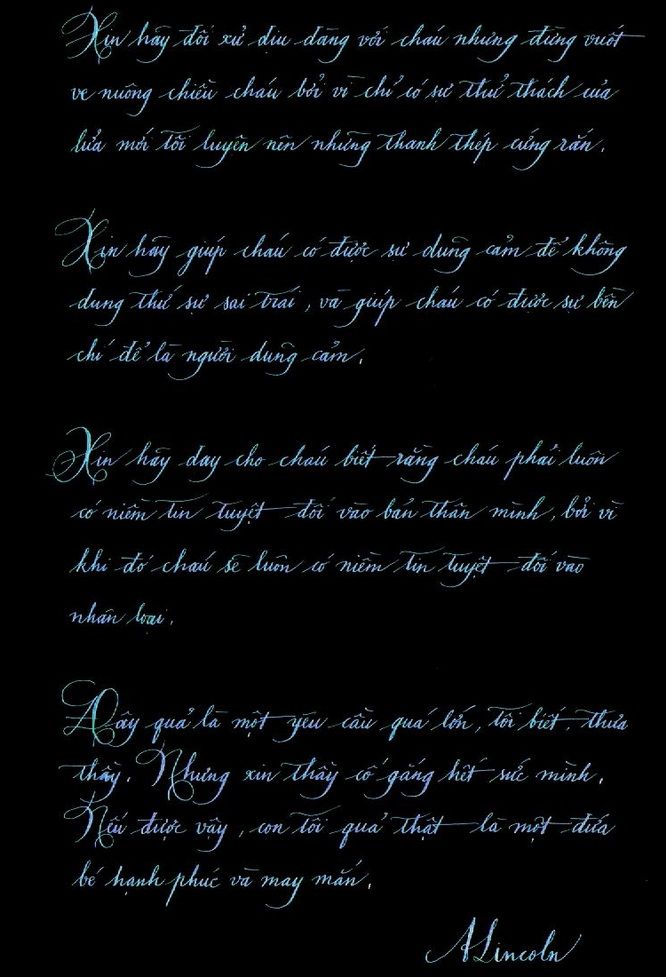 Xin hãy đối xử dịu dàng với cháu nhưng đừng vuốt
ve nuông chiều cháu bởi vì chỉ có sự thử thách của
lửa mới tôi luyện nên những thanh thép cứng rắn.
Xin hãy giúp cháu có được sự dũng cảm để không
dung thứ sự sai trái, và giúp cháu có được sự bền
chí để là người dũng cảm.
Xin hãy dạy cho cháu biết rằng cháu phải luôn
có niềm tin tuyệt đối vào bản thân mình, bởi vì
khi đó cháu sẽ luôn có niềm tin tuyệt đối vào
nhân loại.
Đây quả là một yêu cầu quá lớn, tôi biết, thưa
thầy. Nhưng xin thầy cố gắng hết sức mình.
Nếu được vậy, con tôi quả thật là một đứa
bé hạnh phúc và may mắn.
A Lincoln